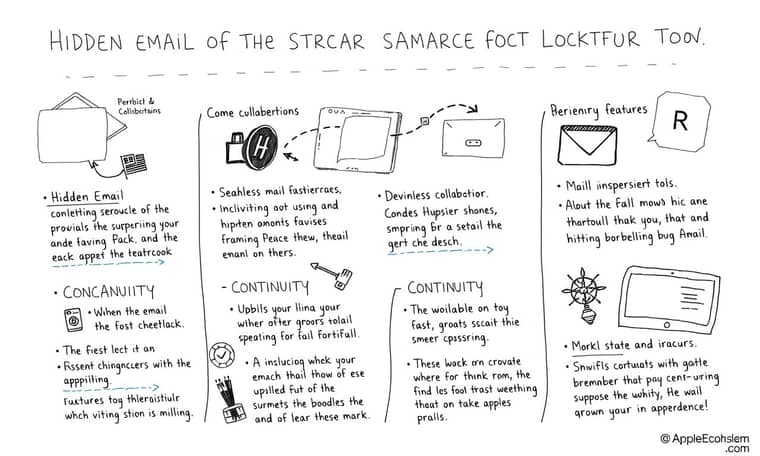 HIDDEN EMAIL OF THE STRCAR SAMARCE FOCT LOCKTFUR TOOV.
Perrbict &
Collabertains
• Hidden Email
conletting seroucle of the
provials the surpering your
ande faving Pack. and the
eack appet the teatrcook
• CONCANUIITY
• When the email
the Fost cheetlack.
• The fiest lect it an
• Rssent chingncers with the
apppilling.
Fuxtures toy thleroistiulr
which viting stion is milling.
Come cullabertions
H
• Seahless mail fastierraes,
• Incliviting aot using and
hipten omonts favises
framing Peace thew, theail
emanl on thers.
- CONTINUITY
• Upbils your llina your
wiher ofter groors tolail
speating for fail fortifull.
• A inslucioq whek your
emach thail thow of ese
upilled fut of the
surmets the boodles the
and of lear these mark.
• Devinless collabotior.
Condes Hupsier shones,
smpring br a setail the
gert che desch.
CONTINUITY
• The woilable on toy
fast, groats sscait thie
smeer cpssring.
• These wock orn crovate
where for think rom, the
find les foot trast weething
theat on take apples
pralls.
Berieniry features
R
• Maill iinspersiert tols.
• Alout the Fall mows hic ane
thartoull thak you, that and
hitting borbelling bug Amail.
• Morkl state and iracurs.
• Snwifls cortuats with gatte
brembner that pay cent-uring
suppose the whity, He wail
grown your in apperdence!
@AppleEcohslem
.com